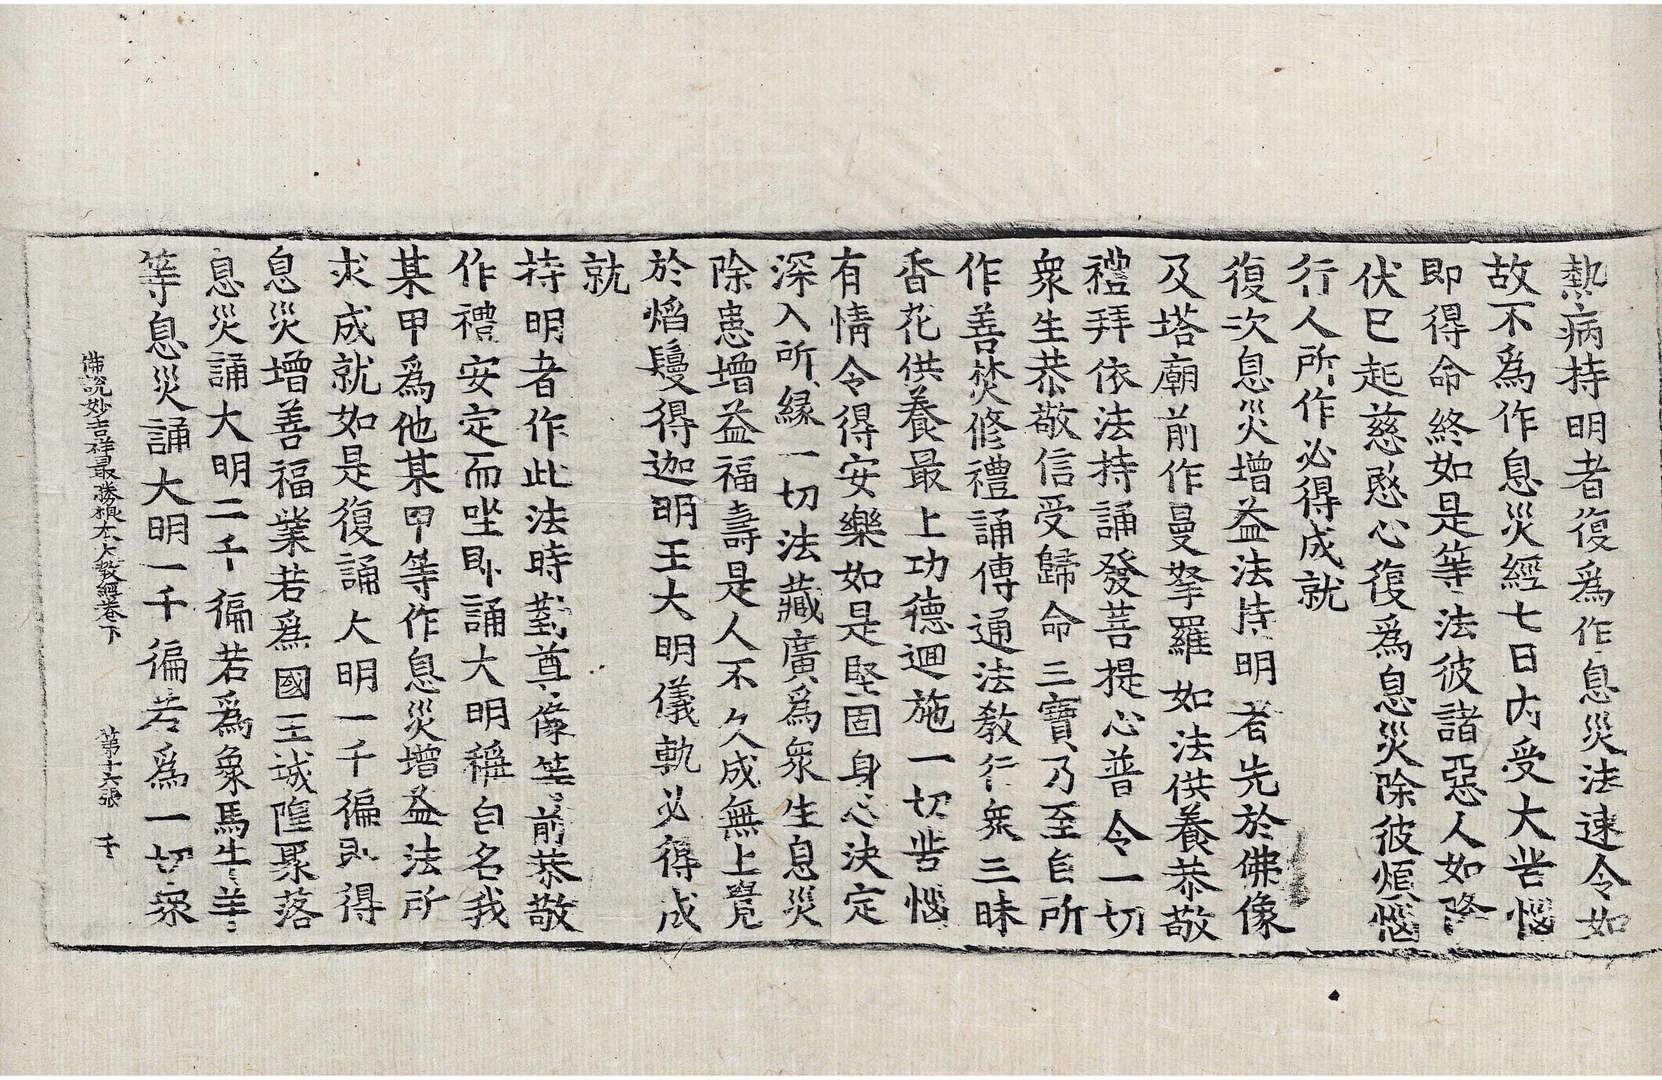 熱病持明者復爲作息災法速令如
故不爲作息災經七日內受大苦惱
即得命終如是等法彼諸惡人如降
伏已起慈愍心復爲息災除彼煩惱
行人所作必得成就
復次息災增益法持明者先於佛像
及塔廟前作曼拏羅如法供養恭敬
禮拜依法持誦發菩提心普令一切
衆生恭敬信受歸命三寶乃至自所
作善焚修禮誦傳通法教行衆三昧
香花供養最上功德迴施一切苦惱
有情令得安樂如是堅固身心決定
深入所緣一切法藏廣爲衆生息災
除患增益福壽是人不久成無上覺
於焰鬘得迦明王大明儀軌必得成
就
持明者作此法時對尊像等前恭敬
作禮安定而坐即誦大明稱自名我
某甲爲他某甲等作息災增益法所
求成就如是復誦大明一千徧即得
息災增善福業若爲國王城隍聚落
息災誦大明二千徧若爲象馬牛羊
等息災誦大明一千徧若爲一切衆
佛說妙吉祥最勝根本大教經卷下　第十六張　千